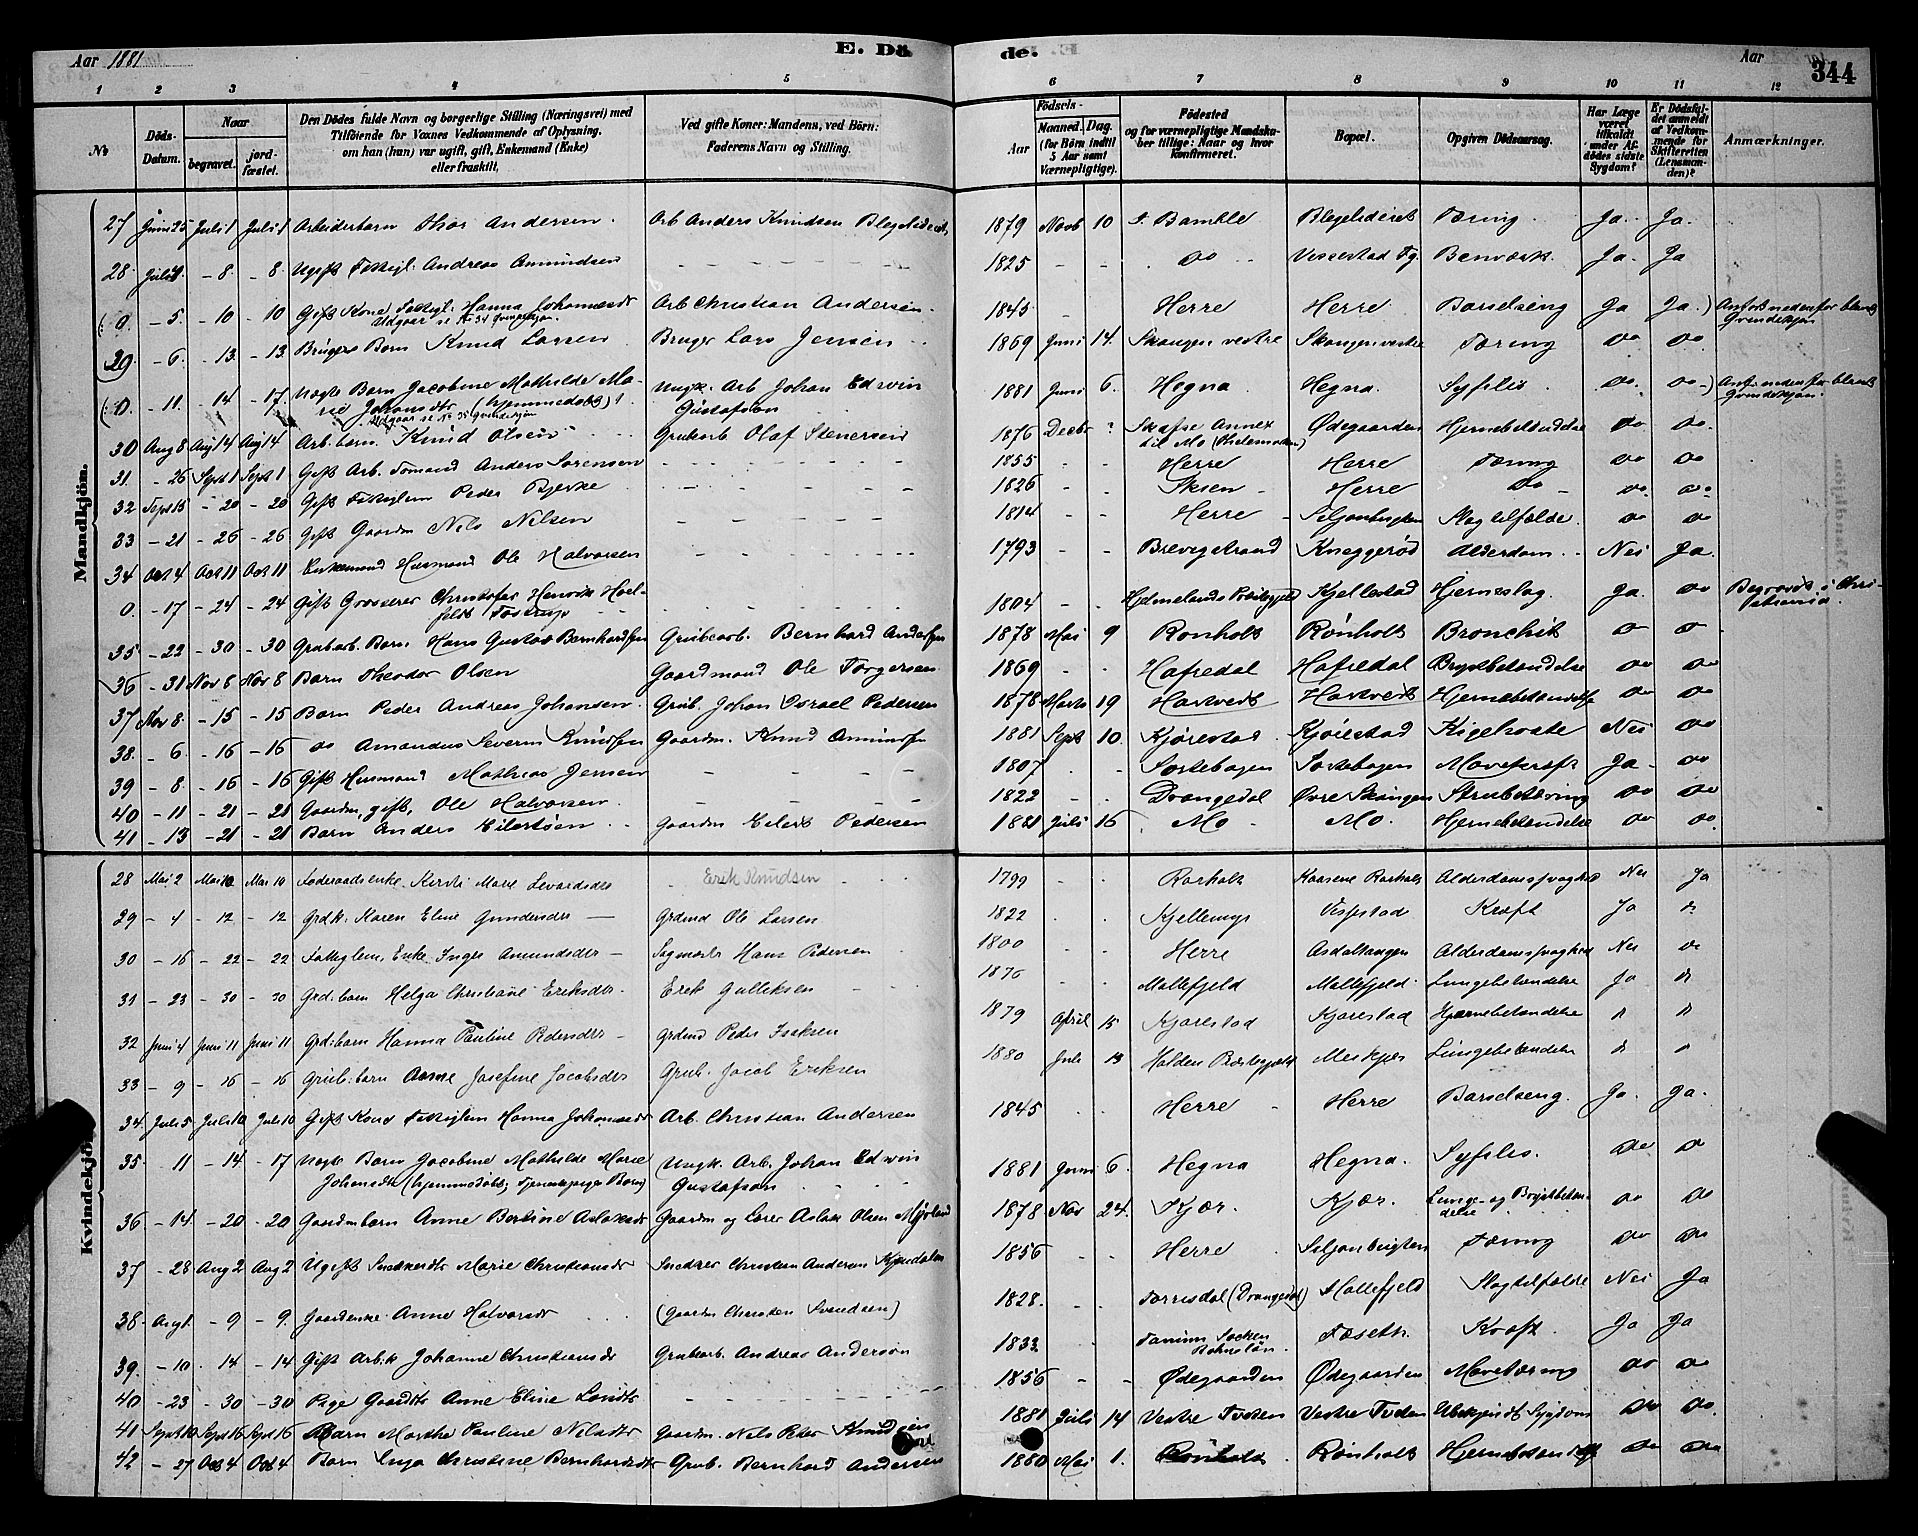 Aar 1881
E. Dö
de.
Aar
344
1 2 3 4 5 6 7 8 9 10 11 12
No
Döds-Datum.
Naar
begravet.
jordfæstet.
Den Dödes fulde Navn og borgerlige Stilling (Næringsvei) med
Tilföiende for Voxnes Vedkommende af Oplysning.
om han (hun) var ugift, gift, Enkemand (Enke)
eller fraskilt,
Ved gifte Koner: Mandens, ved Börn:
Faderens Navn og Stilling.
Aar
Födsels-
Maaned. Dag.
(for Börn indtil
5 Aar samt
Værnepligtige).
Födested
og for værnepligtige Mandska-
ber tillige: Naar og hvor
konfirmeret.
Bopæl.
Opgiven Dödsaarsag.
Har Læge
været
tilkaldt
under Af-
dödes sidste
Sygdom?
Er Dödsfal-
det anmeldt
af Vedkom-
mende for
Skifteretten
(Lensman-
den)?
Anmærkninger.
Mandkjön.
27 Juni 25 Juli 1 Juli 1 Arbeiderbarn Thor Andersen Arb Anders Knudsen 1879 Novb 10 Bamble Tæring Ja Ja
28 Juli - 8 - 8 Ugift Fattigl. Andreas Amundsen - - - 1825 - - Do Benværk Ja Ja
0 - 5 - 10 - 10 Gift Kone Fattigl. Hanna Johannesdr Arb Christian Andersen 1845 Herre Herre Barselseng Ja Ja
Udgaar se No 34 Qvindekjøn.
Anført nedenfor blandt Qvindekjøn
29 - 6 - 13 - 13 Brugers Barn Knud Larsen Bruger Lars Jensen 1869 Juni 14 Skougen vestre Skougen vestre Tæring Do Do
0 - 11 - 14 - 17 Uægte Barn Jacobine Mathilde Ma- Ungk. Arb. Johan Edwin 1881 Juni 6 Hegna Hegna Syfilis Do Do
rie Johansdtr (hjemmedøbt) Gustafson
Udgaar se No 35 Qvindekjøn
Anf. nedenfor blandt Qvindekjøn
30 Aug 8 Aug 14 Aug 14 Arb. barn Knud Olsen Grubearb Olaf Stenersen 1876 Decbr ? Skafse Annex Ødegaarden Do Do
til Mo
31 - 26 Sept 1 Sept 1 Gift Arb. Tømand Anders Sørensen - - - 1855 - - Herre Herre Tæring Do Do
32 Sept 15 - 20 - 20 Gift Fattiglem Peder Bjerke - - - 1826 - - Skien Herre Do Do Do
33 - 21 - 26 - 26 Gift Gaardm Nils Nilsen - - - 1814 - - Herre Slagtilfælde Do Do
34 Oct 4 Oct 11 Oct 11 Enkemand Husmand Ole Halvorsen - - - 1793 - - Brevigstrand Kneggerød Alderdom Nei Ja
0 - 17 - 24 - 24 Gift Grosserer Christofer Henrik Hol- 1804 - - Hjelmelands Præstegjeld Kjellestad Hjerneslag Ja Do Begravet i Chri-
feldt Tostrup stiania
35 - 22 - 30 - 30 Grubearb. Barn Hans Gustav Bernhardsen Grubearb. Bernhard Andersen 1878 Mai 9 Rønholt Rønholt Bronchit Do Do
36 - 31 Nov 8 Nov 8 Barn Theodor Olsen Gaardmand Ole Torgersen 1869 - - Hafredal Hafredal Brystbetændelse Do Do
37 Nov 8 - 15 - 15 Barn Peder Andreas Johansen Grub. Johan Israel Pedersen 1878 Marts 19 Hartvedt Hartvedt Hjernebetændelse Do Do
38 - 6 - 16 - 16 Do Amandus Severin Knudsen Gaardm. Knud Amundsen 1881 Sept 10 Kjørestad Kjørestad Kighoste Nei Do
39 - 8 - 16 - 16 Gift Husmand Mathias Jensen - - - 1807 - - Sortebogen Sortebogen Mavekræft Ja Do
40 - 11 - 21 - 21 Gaardm, gift, Ole Halvorsen - - - 1822 - - Drangedal Øvre Skougen Strubetæring Do Do
41 - 13 - 21 - 21 Barn Anders Eilertsen Gaardm Eilert Pedersen 1881 Juli 16 Mo Mo Hjernebetændelse Do Do
Kvindekjön
28 Mai 2 Mai 10 Mai 10 Føderaadsenke Kirsti Marie Levordsdtr Erik Knudsen 1799 - - Rørholt Kaasene Rørholt Alderdomssvaghed Nei Ja
29 - 4 - 12 - 12 Grdk. Karen Eline Gundersdtr Grdmd Ole Larsen 1822 - - Vissestad Kræft Ja Do
30 - 16 - 22 - 22 Fattiglem, Enke Inger Amundsdtr Hans Pedersen 1800 - - Herre Asdaltangen Alderdomssvaghed Nei Do
31 - 23 - 30 - 30 Grd: barn Helga Christiane Eriksdtr Erik Gulliksen 1876 Mallefjeld Mallefjeld Lungebetændelse Ja Do
32 Juni 4 Juni 11 Juni 11 Grd: barn Hanna Pauline Pedersdtr Grdmd Peder Isaksen 1879 April 15 Kjørestad Kjørestad Hjernebetændelse Do Do
33 - 9 - 16 - 16 Grub: barn Anne Josefine Jacobsdtr Grub. Jacob Eriksen 1880 Juli 13 Holden Præstegjeld Lungebetændelse Do Do
34 Juli 5 Juli 10 Juli 10 Gift Kone Fattiglem Hanna Johannesdtr Arb. Christian Andersen 1845 - - Herre Herre Barselseng Ja Ja
35 - 11 - 14 - 17 Uægte Barn Jacobine Mathilde Marie Ungk. Arb. Johan Edwin 1881 Juni 6 Hegna Hegna Syfilis Do Do
Johansdtr (hjemmedøbt, Tjenestepiges Barn) Gustafson
36 - 14 - 20 - 20 Gaardm barn Anne Bertine Aslaksdtr Gaardm og Lærer Aslak Olsen Mjøland 1878 Nov 24 Kjær Kjær Lunge- og Brystbetæn- Do Do
delse
37 - 28 Aug 2 Aug 2 Ugift Snedkerdtr Marie Christiansdtr Snedker Christian Andersen Kjendalen 1856 - - Herre Tæring Do Do
38 Aug 1 - 9 - 9 Gaardenke Anne Halvorsdtr (Gaardm Christen Svendsen) 1828 - - Torrisdal (Drangedal) Mallefjeld Slagtilfælde Nei Ja
39 - 10 - 14 - 14 Gift Arbk Johanne Christiansdr Grubearb. Andreas Anderson 1833 Tanum Socken Fæseth Kræft Ja Ja
Bohuslän
40 - 23 - 30 - 30 Pige Gaardtr Anne Eline Larsdtr - - - 1856 - - Ødegaarden Ødegaarden Mavetæring Do Do
41 Sept 10 Sept 16 Sept 16 Barn Marthe Pauline Nilsdtr Gaardm. Nils Peter Knudsen 1881 Juli 14 Vestre Tveten Vestre Tveten Ubekjendt Sygdom Do Do
42 - 27 Oct 4 Oct 4 Barn Inga Christine Bernhardsdtr Grub. Bernhard Andersen 1880 Mai 1 Rønholt Rønholt Hjernebetændelse Do Do